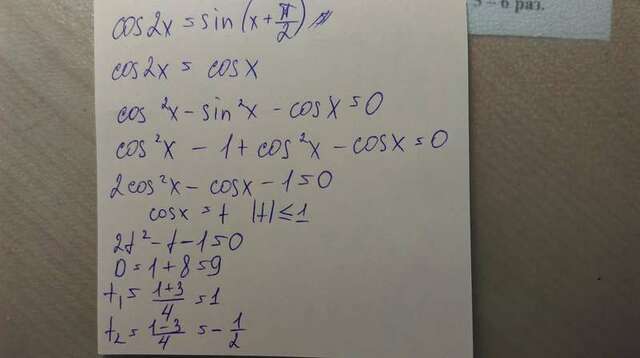 5 – 6 раз.
cos2x = sin(x + π/2)
cos2x = cosx
cos²x – sin²x – cosx = 0
cos²x – 1 + cos²x – cosx = 0
2cos²x – cosx – 1 = 0
cosx = t |t| ≤ 1
2t² – t – 1 = 0
D = 1 + 8 = 9
t₁ = (1+3)/4 = 1
t₂ = (1–3)/4 = –1/2